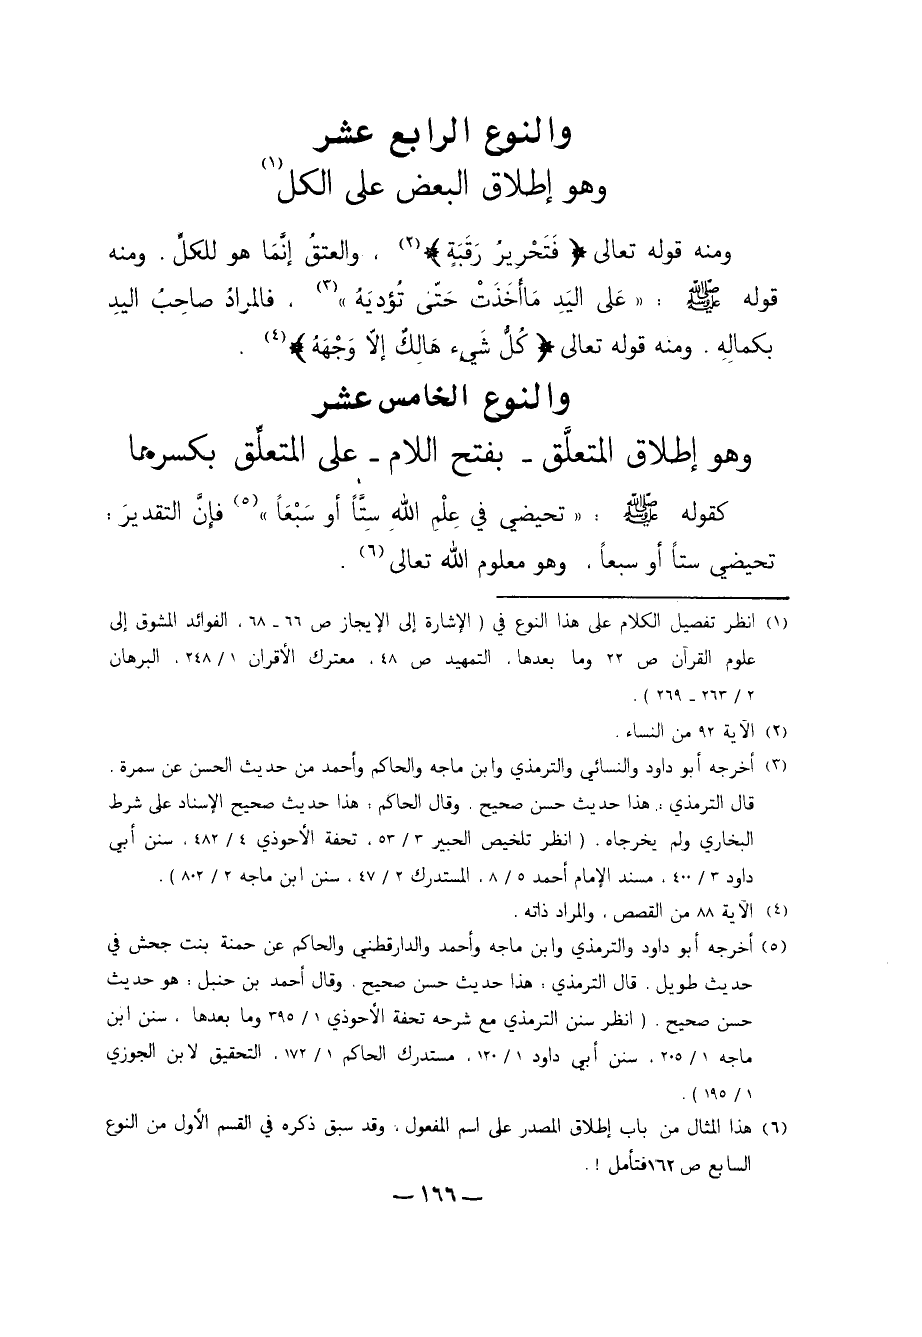 والنوع الرابع عشر
وهو إطلاق البعض على الكل(١)
ومنه قوله تعالى ﴿ فَتَحْرِيرُ رَقَبَةٍ ﴾(٢) ، والعتقُ إنَّمَا هو للكلِّ . ومنه
قوله ﷺ : « عَلى اليَدِ مَاأَخَذَتْ حَتّى تُؤديَهُ »(٣) ، فالمرادُ صاحبُ اليدِ
بكمالِهِ . ومنه قوله تعالى ﴿ كُلُّ شَيءٍ هَالِكٌ إلّا وَجْهَهُ ﴾(٤) .
والنوع الخامس عشر
وهو إطلاق المتعلَّق ـ بفتح اللام ـ على المتعلِّق بكسرها
كقوله ﷺ : « تحيضي في عِلْمِ اللهِ سِتَّاً أو سَبْعَاً »(٥) فإنَّ التقديرَ :
تحيضي ستاً أو سبعاً ، وهو معلوم الله تعالى(٦) .
(١) انظر تفصيل الكلام على هذا النوع في ( الإشارة إلى الإيجاز ص ٦٦ ـ ٦٨ ، الفوائد المشوق إلى
علوم القرآن ص ٢٢ وما بعدها ، التمهيد ص ٤٨ ، معترك الأقران ١ / ٢٤٨ ، البرهان
٢ / ٢٦٣ ـ ٢٦٩ ) .
(٢) الآية ٩٢ من النساء .
(٣) أخرجه أبو داود والنسائي والترمذي وابن ماجه والحاكم وأحمد من حديث الحسن عن سمرة .
قال الترمذي : هذا حديث حسن صحيح . وقال الحاكم : هذا حديث صحيح الإسناد على شرط
البخاري ولم يخرجاه . ( انظر تلخيص الحبير ٣ / ٥٣ ، تحفة الأحوذي ٤ / ٤٨٢ ، سنن أبي
داود ٣ / ٤٠٠ ، مسند الإمام أحمد ٥ / ٨ ، المستدرك ٢ / ٤٧ ، سنن ابن ماجه ٢ / ٨٠٢ ) .
(٤) الآية ٨٨ من القصص ، والمراد ذاته .
(٥) أخرجه أبو داود والترمذي وابن ماجه وأحمد والدارقطني والحاكم عن حمنة بنت جحش في
حديث طويل . قال الترمذي : هذا حديث حسن صحيح . وقال أحمد بن حنبل : هو حديث
حسن صحيح . ( انظر سنن الترمذي مع شرحه تحفة الأحوذي ١ / ٣٩٥ وما بعدها ، سنن ابن
ماجه ١ / ٢٠٥ ، سنن أبي داود ١ / ١٢٠ ، مستدرك الحاكم ١ / ١٧٢ ، التحقيق لابن الجوزي
١ / ١٩٥ ) .
(٦) هذا المثال من باب إطلاق المصدر على اسم المفعول ، وقد سبق ذكره في القسم الأول من النوع
السابع ص ١٦٢فتأمل ! .
ـ ١٦٦ ـ